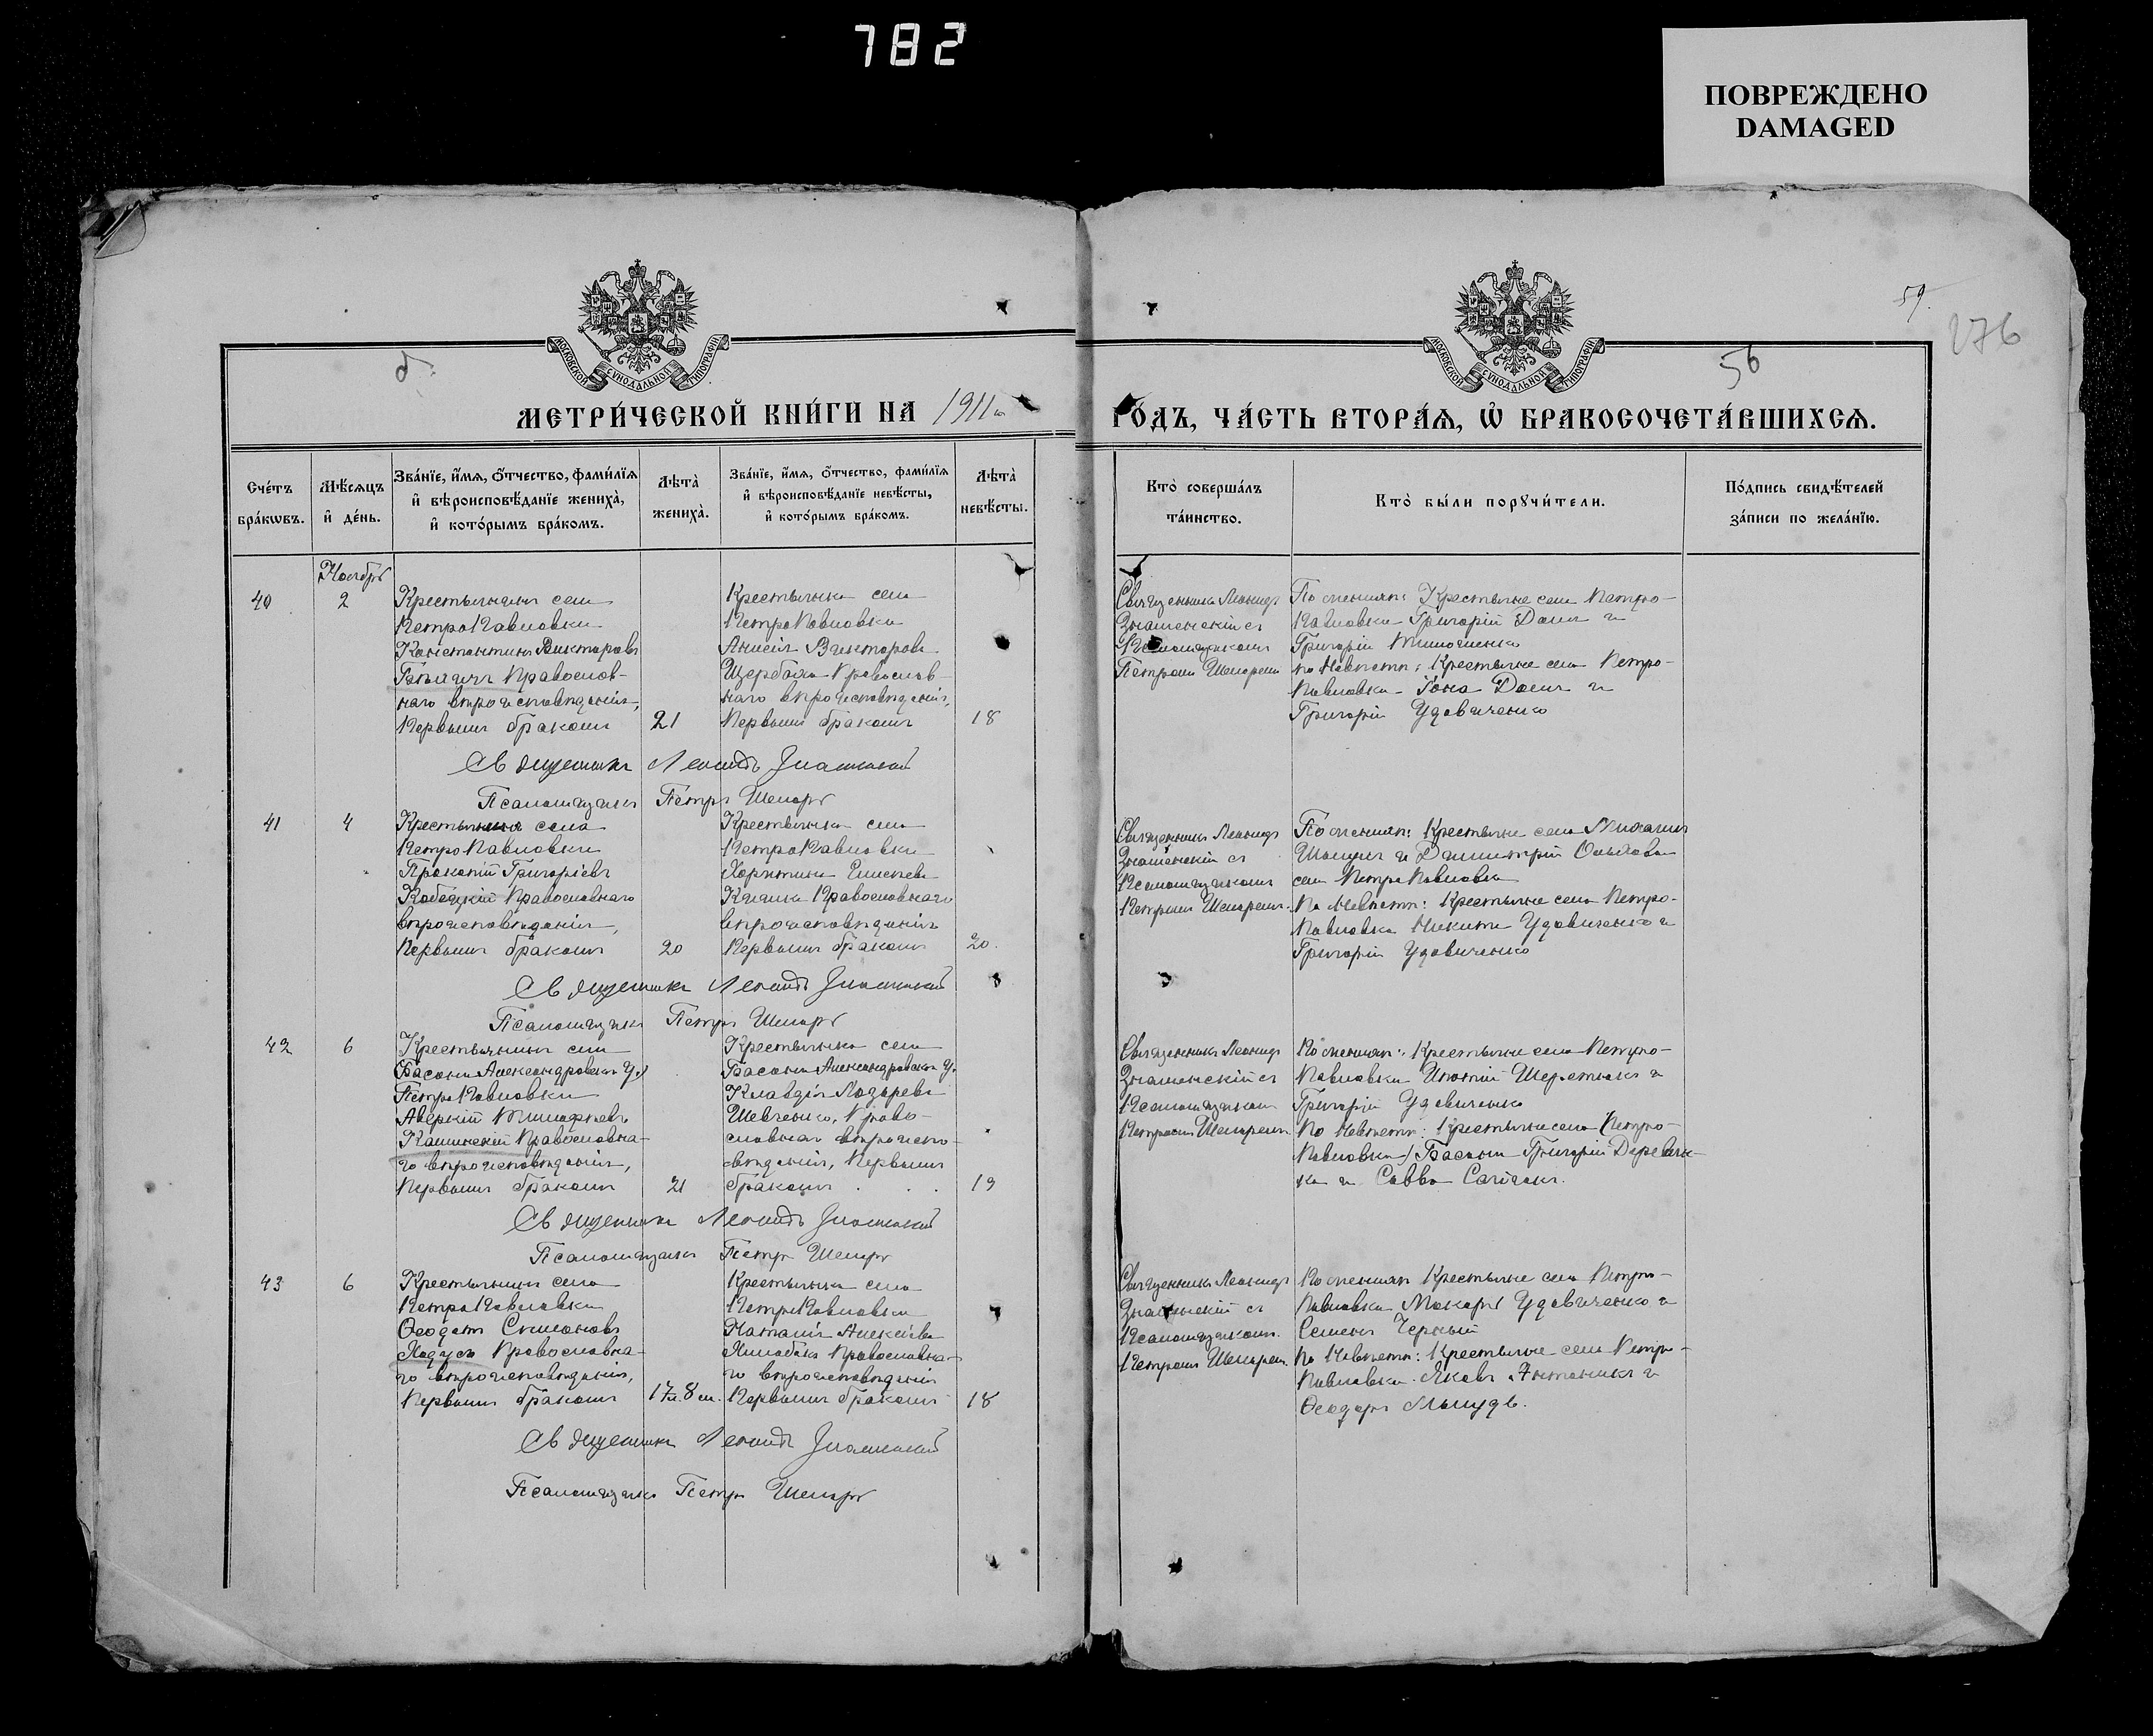 782
ПОВРЕЖДЕНО
DAMAGED
59.
276
56
МОСКОВСКОЙ СѴНОДАЛЬНОЙ ТИПОГРАФІИ
МОСКОВСКОЙ СѴНОДАЛЬНОЙ ТИПОГРАФІИ
МЕТРИ́ЧЕСКОЙ КНИ́ГИ НА 1911
ГО́ДЪ, ЧА́СТЬ ВТОРА́Ѧ, Ѡ҆ БРАКОСОЧЕТА́ВШИХСѦ.
Сче́тъ бра́кѡвъ.
Мѣ́сѧцъ и҆ де́нь.
Зва́нїе, и҆́мѧ, ѻ҆́тчество, фами́лїѧ
и҆ вѣроисповѣ́данїе жениха̀,
и҆ кото́рымъ бра́комъ.
Лѣта̀ жениха̀.
Зва́нїе, и҆́мѧ, ѻ҆́тчество, фами́лїѧ
и҆ вѣроисповѣ́данїе невѣ́сты,
и҆ кото́рымъ бра́комъ.
Лѣта̀ невѣ́сты.
Кто̀ соверша́лъ
та́инство.
Кто̀ бы́ли порꙋчи́тели.
По́дпись свидѣ́телей
за́писи по жела́нїю.
Ноябрь
40
2
Крестьянинъ села
ПетроПавловки
Константинъ Викторовъ
Православ-
наго вѣроисповѣданія,
первымъ бракомъ
21
Крестьянка села
ПетроПавловки
Анисія Викторова
Щербака Православ-
наго вѣроисповѣданія,
первымъ бракомъ
18
Священникъ Леонидъ
Знаменскій съ
Псаломщикомъ
Петромъ Шепаремъ
По женихѣ: Крестьяне села Петро-
Павловки Григорій и
Григорій Тимошенко
по Невѣстѣ: Крестьяне села Петро-
Павловки Іона и
Григорій Удовиченко
Священникъ Леонидъ Знаменскій
Псаломщикъ Петръ Шепарь
41
4
Крестьянинъ села
ПетроПавловки
Прокопій Григоріевъ
Кобецкій Православнаго
вѣроисповѣданія,
первымъ бракомъ
20
Крестьянка села
ПетроПавловки
Харитина
Православнаго
вѣроисповѣданія
первымъ бракомъ
20.
Священникъ Леонидъ
Знаменскій съ
Псаломщикомъ
Петромъ Шепаремъ.
По женихѣ: Крестьяне села Михаилъ
и Димитрій
села ПетроПавловки
По Невѣстѣ: Крестьяне села Петро-
Павловки Никита Удовиченко и
Григорій Удовиченко
Священникъ Леонидъ Знаменскій
Псаломщикъ Петръ Шепарь
42
6
Крестьянинъ села
Басани Александровск. у.
ПетроПавловки
Аверкій Тимофѣевъ
Православна-
го вѣроисповѣданія,
первымъ бракомъ
21
Крестьянка села
Басани Александровск. у.
Клавдія Лазарева
Шевченко, Право-
славнаго вѣроиспо-
вѣданія, первымъ
бракомъ
19
Священникъ Леонидъ
Знаменскій съ
Псаломщикомъ
Петромъ Шепаремъ
По женихѣ: Крестьяне села Петро-
Павловки Ипатій Шереметъ и
Григорій Удовиченко
По Невѣстѣ: Крестьяне села (Петро-
Павловки) Басани Григорій Деревян-
ка и Савва
Священникъ Леонидъ Знаменскій
Псаломщикъ Петръ Шепарь
43
6
Крестьянинъ села
ПетроПавловки
Ѳеодотъ Симоновъ
Православна-
го вѣроисповѣданія,
первымъ бракомъ
17 л. 8 м.
Крестьянка села
ПетроПавловки
Наталія Алексѣева
Православна-
го вѣроисповѣданія
первымъ бракомъ
18
Священникъ Леонидъ
Знаменскій съ
Псаломщикомъ
Петромъ Шепаремъ.
По женихѣ Крестьяне села Петро-
Павловки Макарій Удовиченко и
Семенъ Черный
По Невѣстѣ: Крестьяне села Петро-
Павловки Яковъ и
Ѳеодоръ
Священникъ Леонидъ Знаменскій
Псаломщикъ Петръ Шепарь